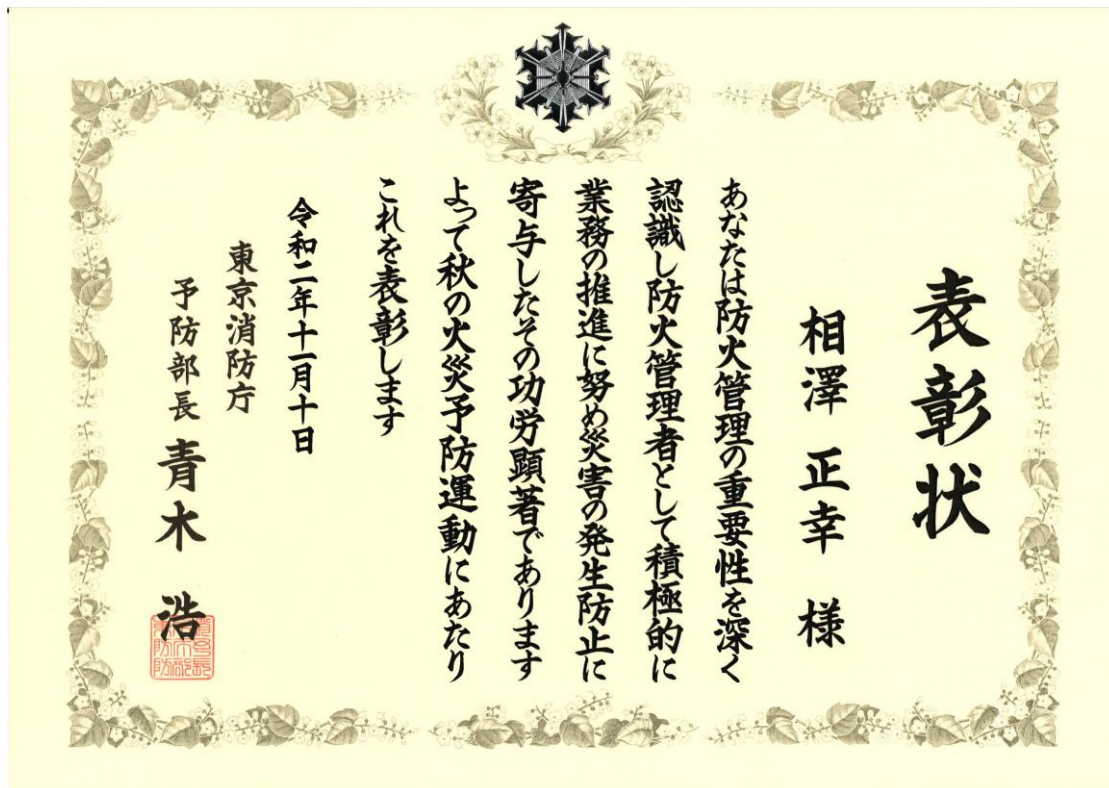 表彰状
相澤 正幸 様
あなたは防火管理の重要性を深く
認識し防火管理者として積極的に
業務の推進に努め災害の発生防止に
寄与したその功労顕著であります
よって秋の火災予防運動にあたり
これを表彰します
令和二年十一月十日
東京消防庁
予防部長 青木 浩